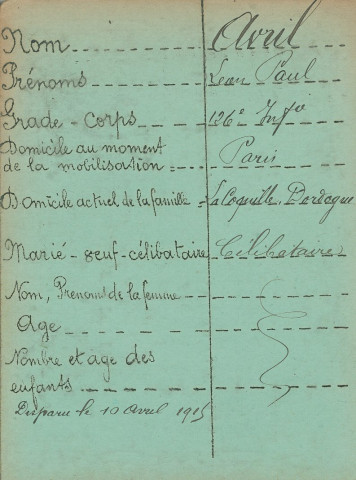 Nom Avril
Prénoms Léon Paul
Grade - corps 126e Inf
Domicile au moment
de la mobilisation = Paris
Domicile actuel de la famille = La Coquille. Dordogne
Marié - veuf - célibataire Célibataire
Nom, Prénoms de la femme
Age
Nombre et age des
enfants
Disparu le 10 avril 1915